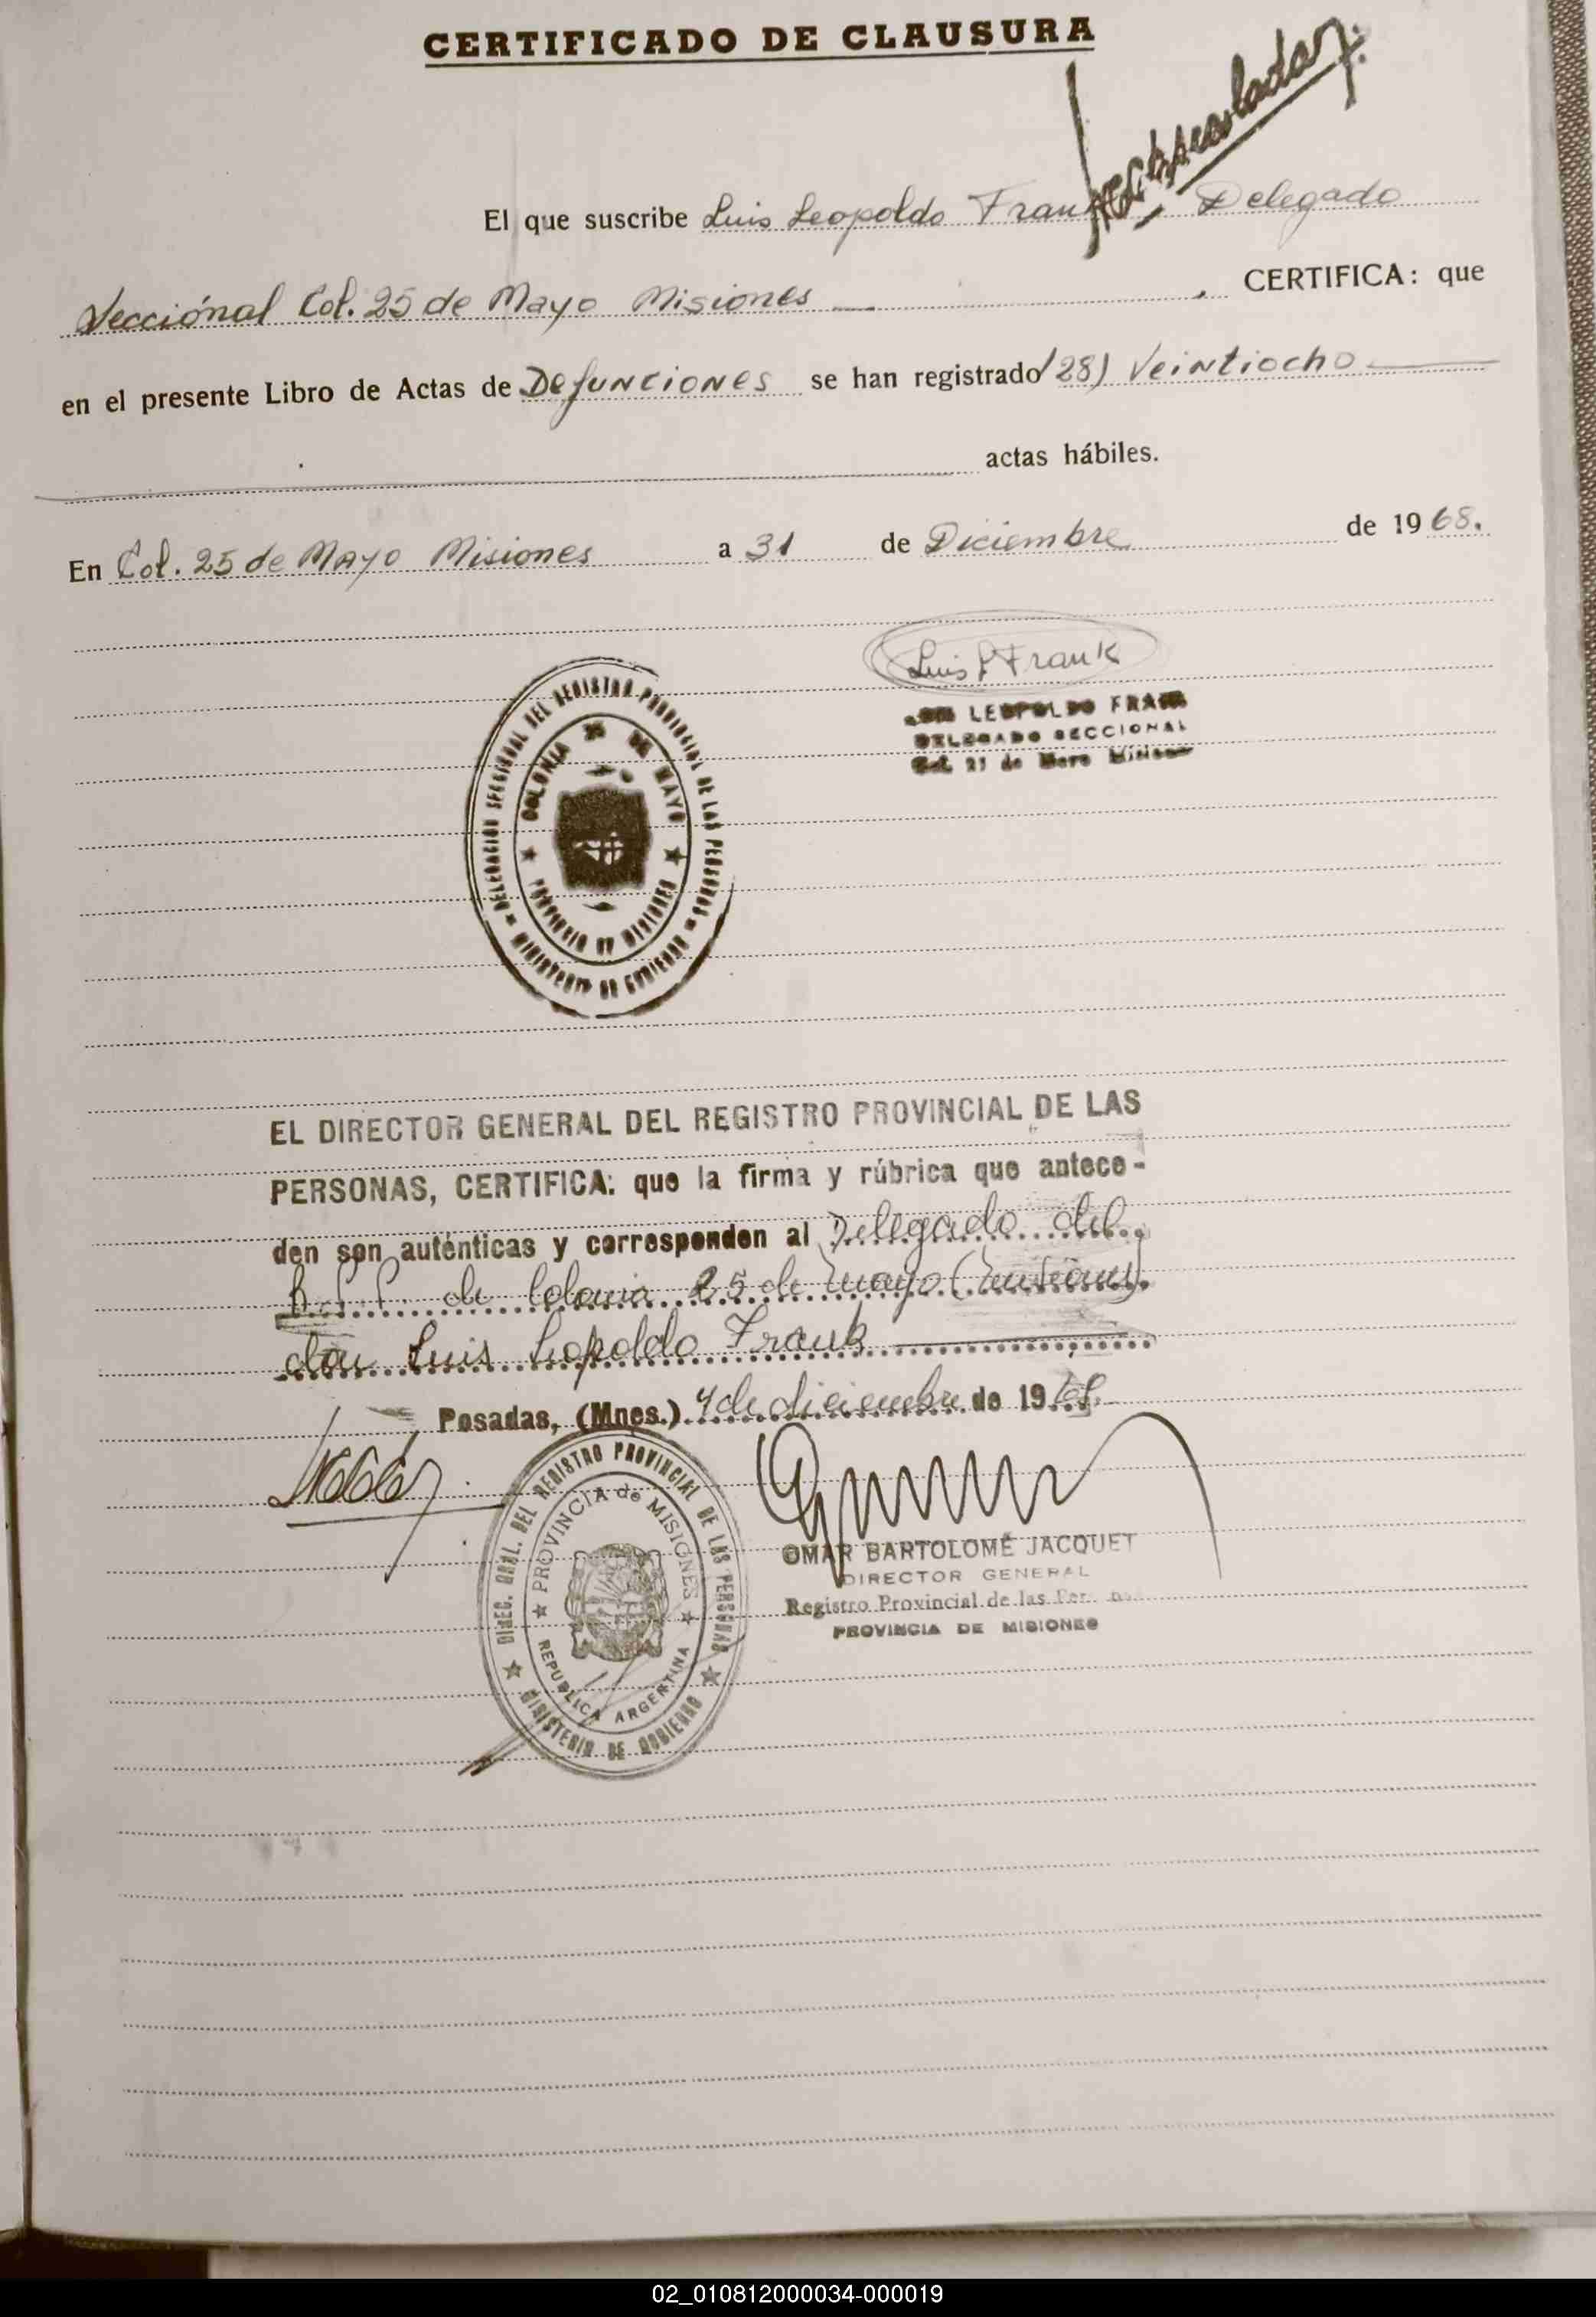 CERTIFICADO DE CLAUSURA
El que suscribe Luis Leopoldo Frank Delegado
Secciónal Col. 25 de Mayo Misiones, CERTIFICA: que
en el presente Libro de Actas de Defunciones se han registrado (28) Veintiocho
actas hábiles.
En Col. 25 de Mayo Misiones a 31 de Diciembre de 1968.
Luis L Frank
LEOPOLDO FRANK
DELEGADO SECCIONAL
DELEGACION SECCIONAL DEL REGISTRO PROVINCIAL DE LAS PERSONAS
MINISTERIO DE GOBIERNO
COLONIA 25 DE MAYO
PROVINCIA DE MISIONES
EL DIRECTOR GENERAL DEL REGISTRO PROVINCIAL DE LAS
PERSONAS, CERTIFICA: que la firma y rúbrica que antece-
den son auténticas y corresponden al Delegado del
de Colonia 25 de mayo (Misiones)
don Luis Leopoldo Frank
Posadas, (Mnes.) de diciembre de 19
DIREC. GRAL. DEL REGISTRO PROVINCIAL DE LAS PERSONAS
MINISTERIO DE GOBIERNO
PROVINCIA de MISIONES
REPUBLICA ARGENTINA
OMAR BARTOLOMÉ JACQUET
DIRECTOR GENERAL
Registro Provincial de las
PROVINCIA DE MISIONES
02_010812000034-000019